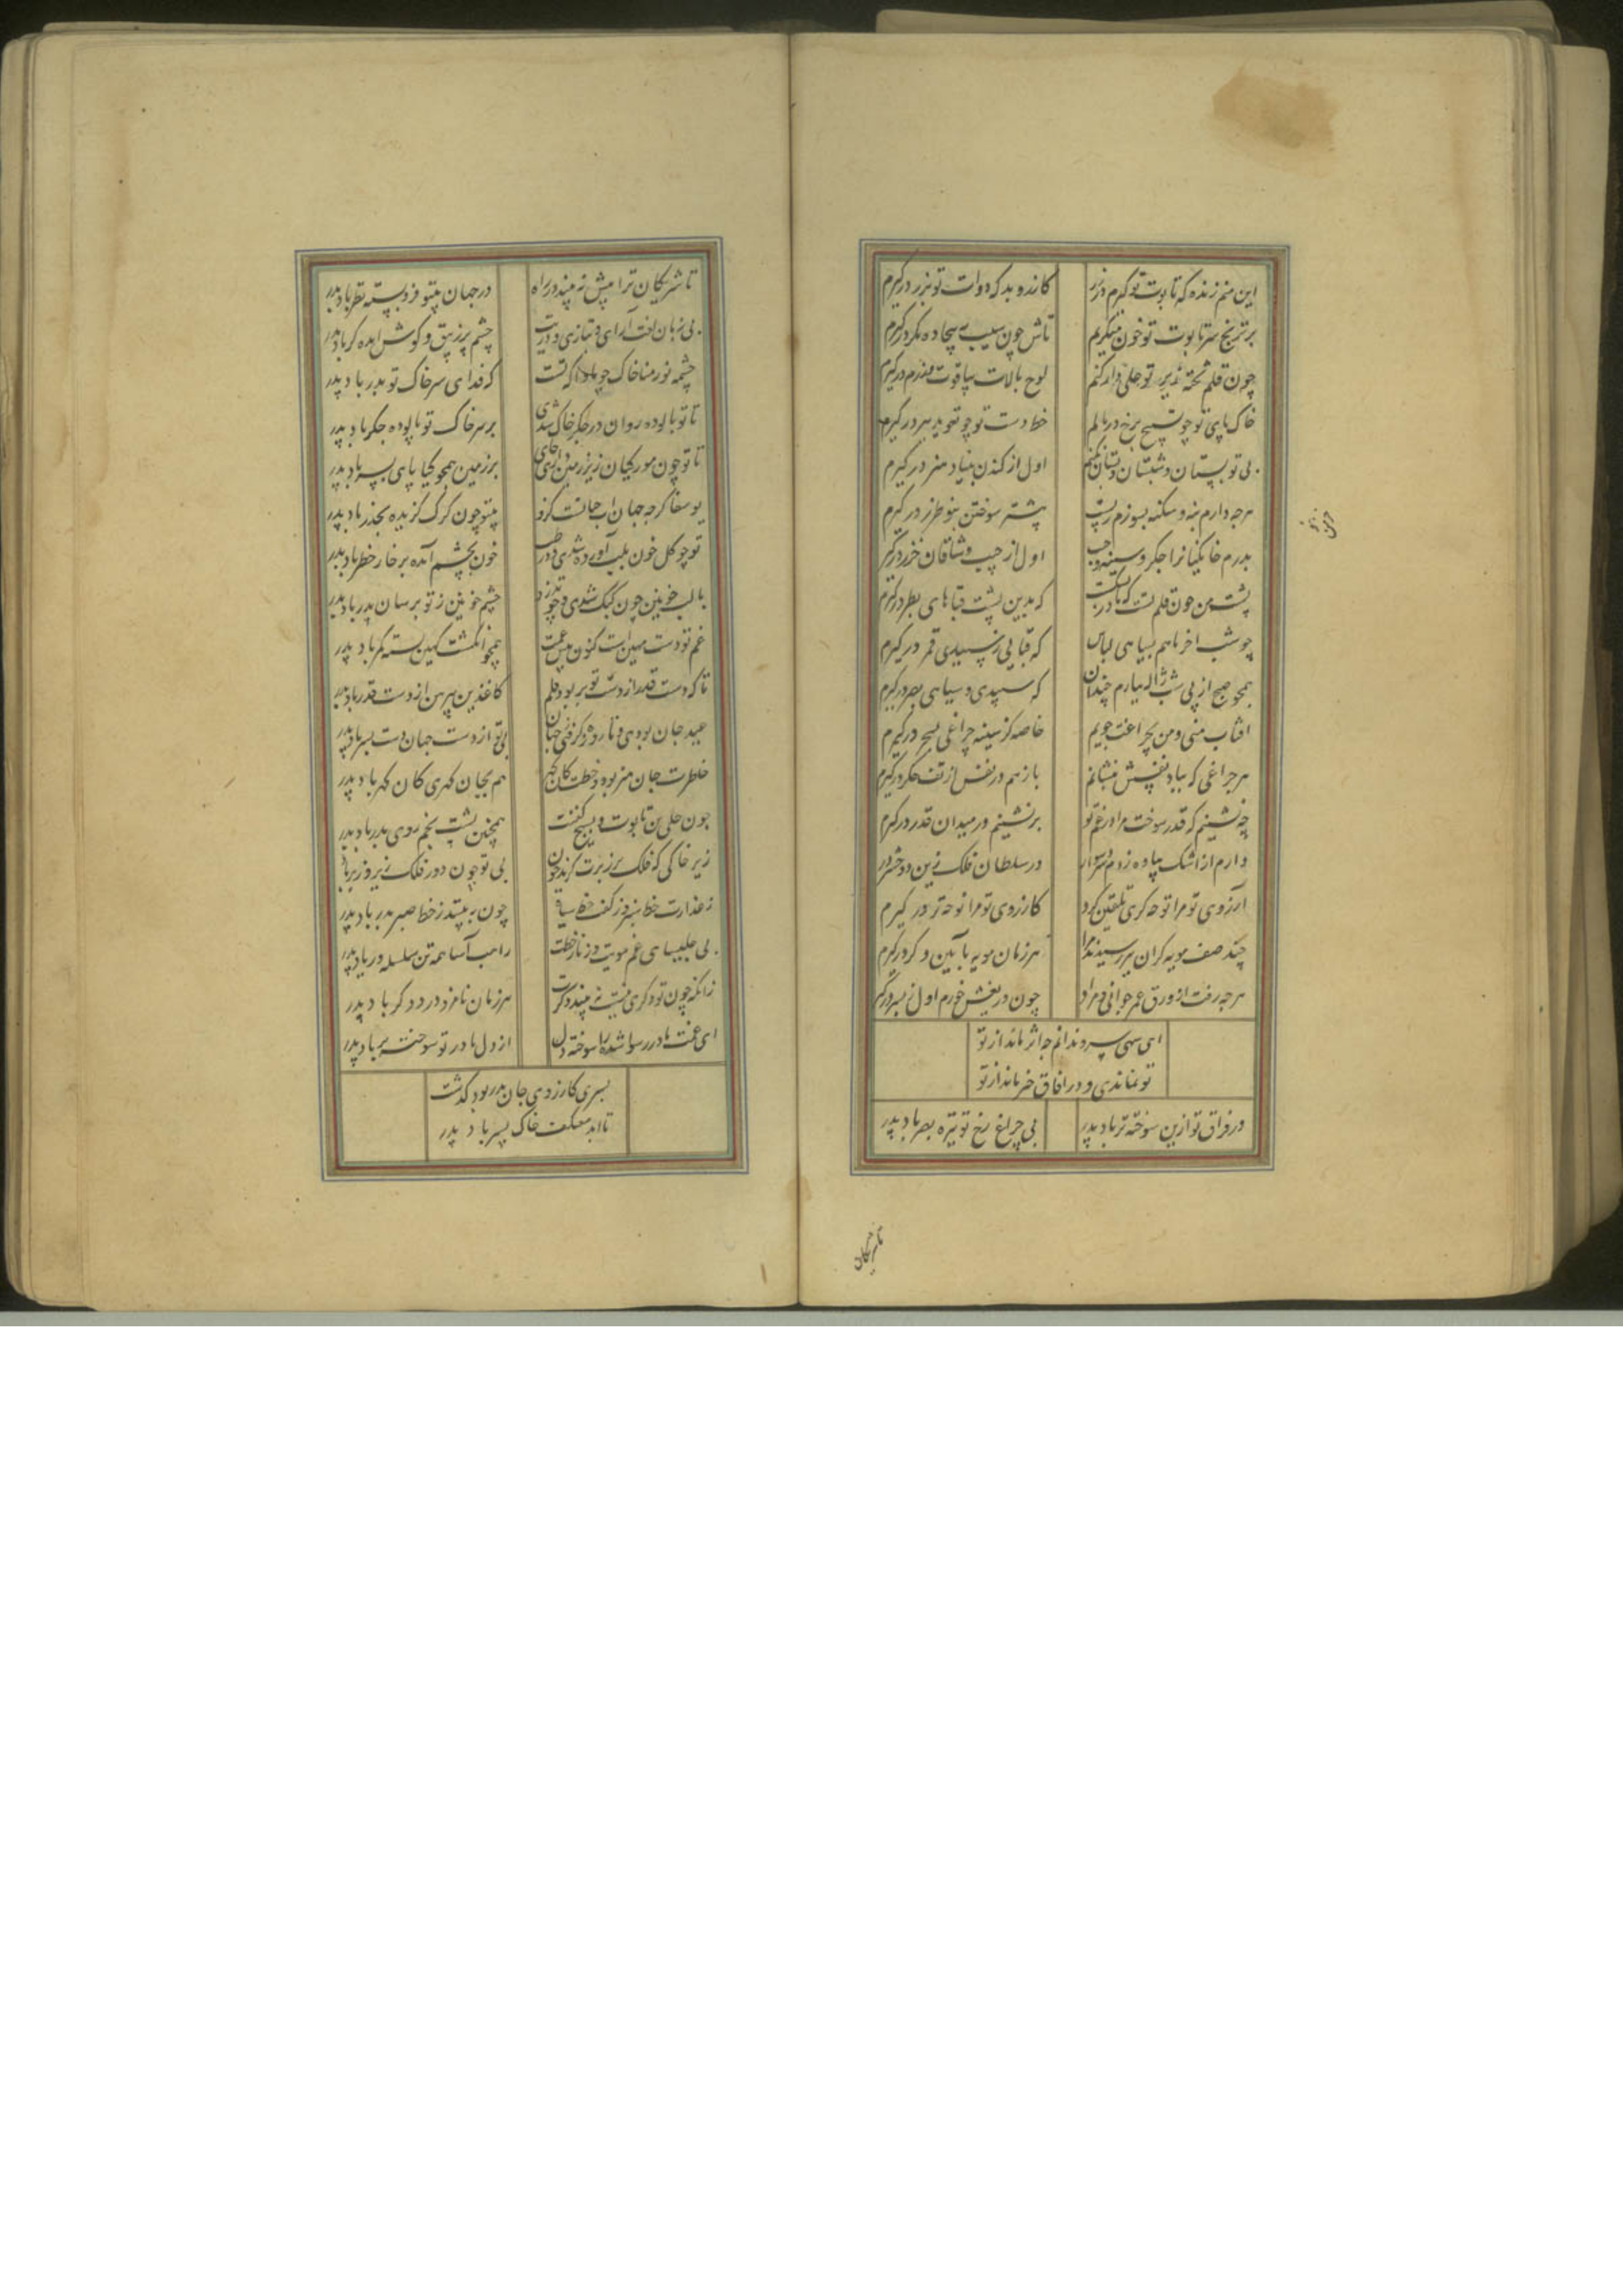 این منم زنده که تابوت تو گیرم در زر کازدو بد که دوات تو بزر درگیرم
بر ترنج سر تابوت تو خون میگریم تاش چون سیب بیجاده مگر درگیرم
چون قلم تخته زرین تو حلی وار کنم لوح بالات بیاقوت درگیرم
خاک پای تو چو تسبیح برخ درمالم خط دست تو چو تعویذ ببر درگیرم
بی تو بستان و شبستان اول از کندن بنیاد درگیرم
هرچه دارم بنه و سکنه بسوزم ز پست پیشتر سوختن درگیرم
بدرم خانگیانرا جگر و سینه و جیب اول از جیب و شاقان خزر درگیر
پشت من چون قلمت که بدین پشت قباهای بطر درگیرم
چو شب اخر ماهم بسیاهی لباس که قبایی ز سپیدی قمر درگیرم
همچو صبح از پی شب ژاله ببارم چندان که سپیدی و سیاهی بصر درگیرم
افتاب منی و من بچراغت جویم خاصه کز سینه چراغی بسحر درگیرم
هر چراغی که بباد نفسش بنشانم بازهم در نفس از تف جگر درگیرم
چه نشینم که قدر سوخت مرا در غم تو برنشینم در میدان قدر درگیرم
دارم از اشک پیاده ز دم سرد سوار در سلطان فلک زین دو حشر در
آرزوی تو مرا نوحه گری تلقین کرد کارزوی تو مرا نوحه تر درگیرم
چند صف مویه گران نیز رسیدند مرا هر زمان مویه بآیین دگر درگیرم
هرچه رفت از ورق عمر جوانی و مراد چون دریغش خورم اول ز پسر درگیر
ای سهی سرو ندانم چه اثر ماند از تو
تو نماندی و در افاق خبر ماند از تو
در فراق تو ازین سوخته تر باد پدر بی چراغ رخ تو تیره بصر باد پدر
تا شریکان
تا شریکان ترا بیش نبیند در راه در جهان بیتو فروبسته نظر باد پدر
بی زبان لغت آرای و تازی و دریت چشم پر زیبق و گوش اکنده کر باد پدر
چشمه نور منا خاک چو ماوا گه تست که فدای سر خاک تو پدر باد پدر
تا تو پالوده روان در جگر خاک شدی بر سر خاک تو پالوده جگر باد پدر
تا تو چون مهر گیا زیر زمین داری جای بر زمین همچو گیا پای بسر باد پدر
یوسفا گرچه جهان اب حیاتت گرفت بیتو چون گرگ گزیده بحذر باد پدر
تو چو گل خون بلب آورده شدی خون بچشم آمده بر خار خطر باد پدر
با لب خونین چون کبک شدی و چو تذرو چشم خونین ز تو برسان پدر باد پدر
غم تو دست مهین است کنون همچو انگشت کهین بسته کمر باد پدر
تا که دست قدر از دست تو بربود قلم کاغذین پیرهن از دست قدر باد پدر
عید جان بودی و تا روزه گرفتی ز جهان بی تو از دست جهان دست بسر باد پدر
خاطرت جان هنر بود و خطت کان گهر هم بجان گهری کان گهر باد پدر
چون حلی بن تابوت و نسیج کفنت همچنین پشت بخم روی بزر باد پدر
زیر خاکی که فلک بر زبرت گرید خون بی تو چون دور فلک زیر و زبر باد
ز عذارت خط سبز و ز کفت خط سیاه چون نبیند ز خط صبر بدر باد پدر
بی چلیپای خم مویت و زنار خطت راهب آسا همه تن سلسله ور باد پدر
زانکه چون تو دگری نیست نبیند دگرت هر زمان نامزد درد دگر باد پدر
ای غمت مادر رسوا شده را سوخته دل از دل مادر تو سوخته تر باد پدر
پسری کارزوی جان پدر بود گذشت
تا ابد معتکف خاک پسر باد پدر